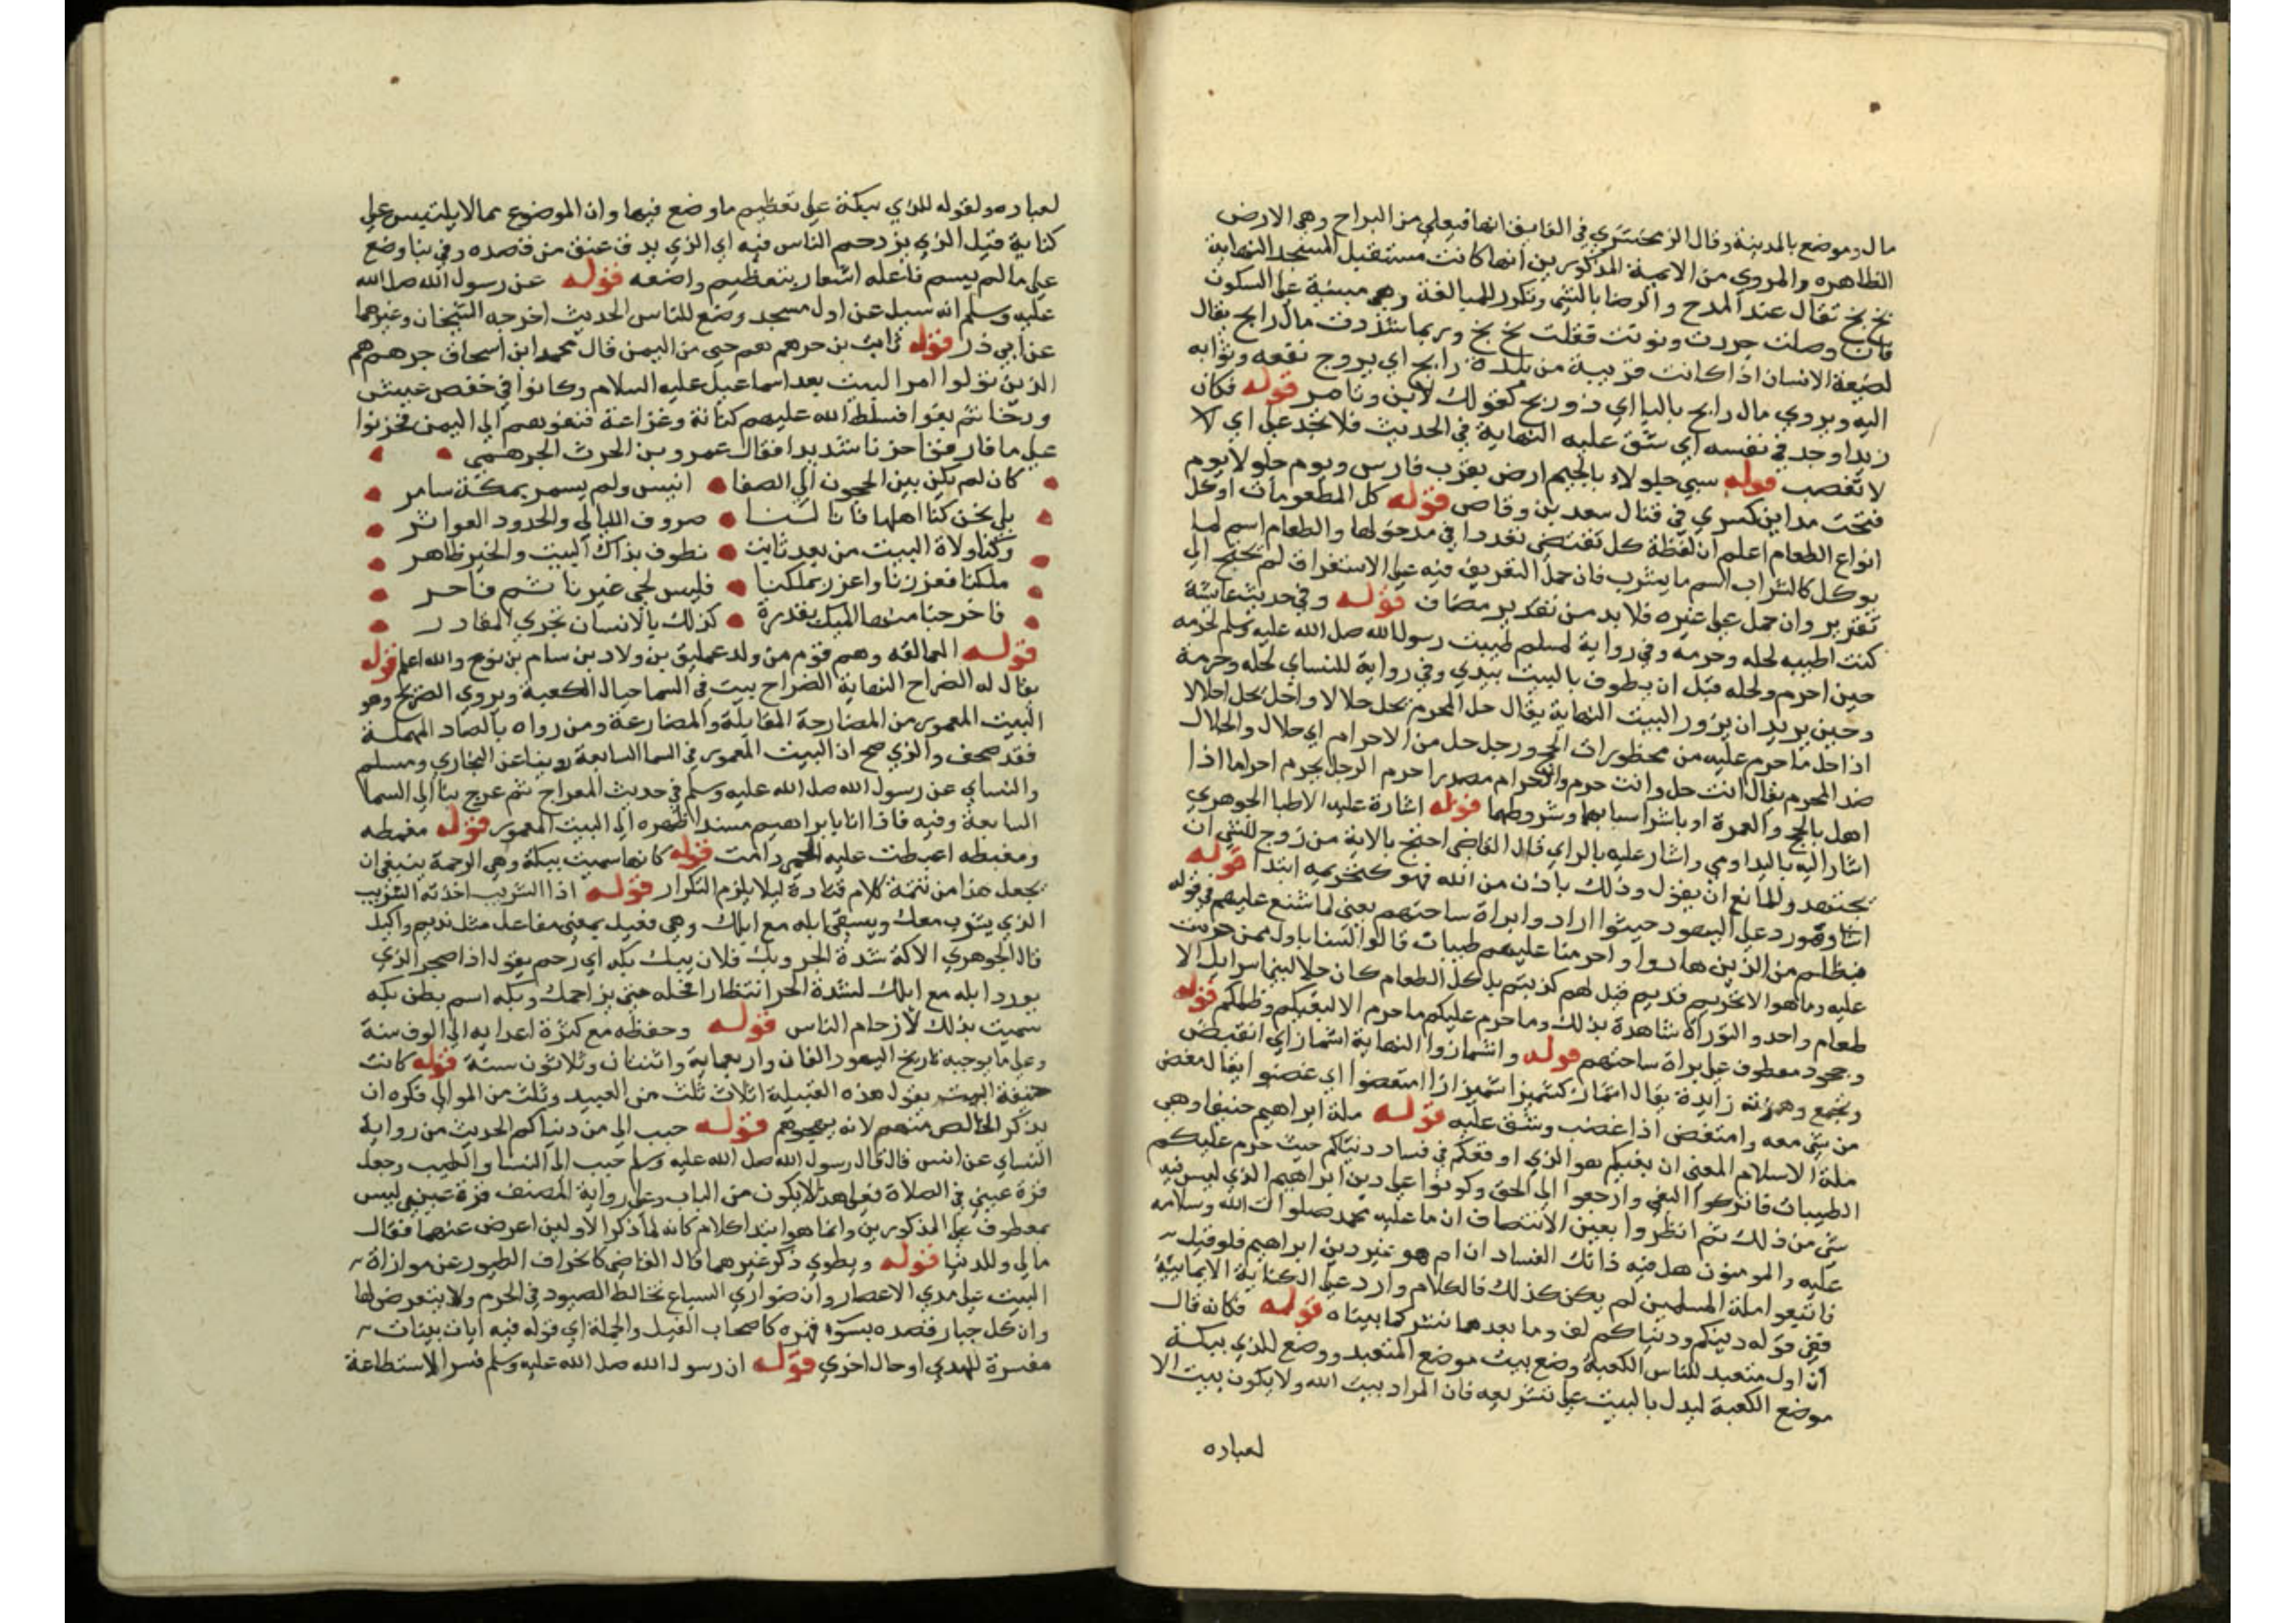 مال وموضع بالمدينة وقال الزمخشري في الفايق انها فيعلي من البراح وهي الارض
الظاهره والمروي من الايمة المذكورين انها كانت مستقبل المسجد النهاية
بخ بخ تقال عند المدح والرضا بالشي وتكرر للمبالغة وهي مبنية علي السكون
فان وصلت جررت ونونت فقلت بخ بخ وربما شددت مال رابح يقال
لضيعة الانسان اذا كانت قريبة من بلده رابح اي يروح نفعه وثوابه
اليه ويروي مال رابح بالبا اي ذو ربح كقولك لابن وتامر قوله فكان
زيدا وجد في نفسه اي شق عليه النهاية في الحديث فلا تجد علي اي لا
لا تغضب قوله سبي جلولاء بالجيم ارض بقرب فارس ويوم جلولا يوم
فتحت مداين كسري في قتال سعد بن وقاص قوله كل المطعومات او كل
انواع الطعام اعلم ان لفظة كل تقتضي تعددا في مدخولها والطعام اسم لما
يوكل كالشراب اسم ما يشرب فان حمل التعريف فيه علي الاستغراق لم يحتج الي
تقرير وان حمل علي غيره فلا بد من تقدير مضاف قوله وفي حديث عائشة
كنت اطيبه لحله وحرمه وفي رواية لمسلم طيبت رسول الله صل الله عليه وسلم لحرمه
حين احرم ولحله قبل ان يطوف بالبيت بيدي وفي رواية للنساي لحله وحرمة
وحين يريد ان يزور البيت النهاية يقال حل المحرم يحل حلالا واحل يحل احلالا
اذا حل ما حرم عليه من محظورات الحج ورجل حل من الاحرام اي حلال والحلال
ضد المحرم يقال انت حل وانت حرم والاحرام مصدر احرم الرجل يحرم احراما اذا
اهل بالحج والعمرة او باشر اسبابهما وشروطهما قوله اشارة عليه الاطبا الجوهري
اشار اليه باليد اومي واشار عليه بالراي قال القاضي احتج بالاية من زوج للنبي ان
يجتهد وللمانع ان يقول وذلك باذن من الله فهو كتحريمه ابتدا قوله
وهو رد علي اليهود حيث ارادوا براة ساحتهم يعني لما شنع عليهم في قوله
فبظلم من الذين هادوا واحرمنا عليهم طيبات قالوا لسنا باول من حرمت
عليه وما هو الا تحريم قديم قيل لهم كذبتم بل كل الطعام كان حلا لبني اسرايل الا
طعام واحد والتوراة شاهدة بذلك وما حرم عليكم ما حرم الا لبغيكم وظلمكم قوله
وجحود معطوف علي براة ساحتهم قوله واشمازوا النهاية اشماز اي انقبض
وتجمع وهمزته زايدة يقال اشماز يشميز اشميزازا امتعضوا اي غضبوا يقال معض
من شي معه وامتعض اذا غضب وشق عليه قوله ملة ابراهيم حنيفا وهي
ملة الاسلام المعني ان بغيكم هو الذي اوقعكم في فساد دنياكم حيث حرم عليكم
الطيبات فاتركوا البغي وارجعوا الي الحق وكونوا علي دين ابراهيم الذي ليس فيه
شي من ذلك ثم انظروا بعين الانتصاف ان ما عليه محمد صلوات الله وسلامه
عليه والمومنون هل فيه ذاتك الفساد ان ام هو غير دين ابراهيم فلو قيل
فاتبعوا ملة المسلمين لم يكن كذلك فالكلام وارد علي الكناية الايمانية
ففي قوله دينكم ودنياكم لف وما بعدهما نشر كما بيناه قوله فكانه قال
ان اول متعبد للناس الكعبة وضع بيت موضع المتعبد ووضع للذي ببكة
موضع الكعبة ليدل بالبيت علي تشريعه فان المراد بيت الله ولا يكون بيت الا
لعباده
لعباده ولقوله للذي ببكة علي تعظيم ما وضع فيها وان الموضوع مما لا يلتبس علي
كناية قيل الذي يزدحم الناس فيه اي الذي يدق عنق من قصده وفي بنا وضع
علي ما لم يسم فاعله اشعار بتعظيم واضعه قوله عن رسول الله صل الله
عليه وسلم انه سيل عن اول مسجد وضع للناس الحديث اخرجه الشيخان وغيرهما
عن ابي ذر قوله ثم بن جرهم نعم حي من اليمن قال محمد ابن اسحاق جرهم هم
الذين تولوا امر البيت بعد اسماعيل عليه السلام وكانوا في خفض عيش
ورخا ثم بغوا فسلط الله عليهم كنانة وخزاعة فنفوهم الي اليمن فحزنوا
علي ما فارقوا حزنا شديدا فقال عمرو بن الحرث الجرهمي
كان لم يكن بين الحجون الي الصفا انيس ولم يسمر بمكة سامر
بلي نحن كنا اهلها فازالنا صروف الليالي والجدود العواثر
وكنا ولاة البيت من بعد نابت نطوف بذاك البيت والخير ظاهر
ملكنا فعززنا واعزز بملكنا فليس لحي غيرنا ثم فاخر
فاخرجنا منها المليك بقدرة كذلك بالانسان تجري المقادر
قوله العمالقه وهم قوم من ولد عمليق بن ولاد بن سام بن نوح والله اعلم قوله
يقال له الضراح النهاية الضراح بيت في السما حيال الكعبة ويروي الضريح وهو
البيت المعمور من المضارحة المقابلة والمضارعة ومن رواه بالصاد المهملة
فقد صحف والذي صح ان البيت المعمور في السما السابعة روينا عن البخاري ومسلم
والنساي عن رسول الله صل الله عليه وسلم في حديث المعراج ثم عرج بنا الي السما
السابعة وفيه فاذا انا بابراهيم مسندا ظهره الي البيت المعمور قوله مغمطه
ومغبطه اغبطت عليه الحمي دامت قوله كانها سميت ببكة وهي الزحمة ينبغي ان
يجعل هذا من تتمة كلام قتادة ليلا يلزم التكرار قوله اذا الشريب اخذته الشريب
الذي يشرب معك ويسقي ابله مع ابلك وهي فعيل بمعني مفاعل مثل نديم واكيل
قال الجوهري الاكة شدة الحر وبك فلان يبك بكه اي زحم يقول اذا ضجر الذي
يورد ابله مع ابلك لشدة الحر انتظارا فخله حتي يزاحمك وبكه اسم بطن مكه
سميت بذلك لازحام الناس قوله وحفظه مع كثرة اعدايه الي الوف سنة
وعلي ما يوجبه تاريخ اليهود الفان واربعماية واثنتان وثلاثون سنة قوله كانت
حنيفة البيت يقول هذه القبيلة اثلاث ثلث من العبيد وثلث من الموالي فكره ان
يذكر الخالص منهم لانه يهجوهم قوله حبب الي من دنياكم الحديث من رواية
النساي عن انس قال قال رسول الله صل الله عليه وسلم حبب الي النسا والطيب وجعل
قرة عيني في الصلاة فعلي هذا لا يكون من الباب وعلي رواية المصنف قرة عيني ليس
بمعطوف علي المذكورين وانما هو ابتدا كلام كانه لما ذكر الاولين اعرض عنهما فقال
مالي وللدنيا قوله ويطوي ذكر غيرهما قال القاضي كانحراف الطيور عن موازاة
البيت علي مدي الاعصار وان ضواري السباع تخالط الصيود في الحرم ولا يتعرض لها
وان كل جبار قصده بسوء قهره كاصحاب الفيل والجملة اي قوله فيه ايات بينات
مفسرة للهدي او حال اخري قوله ان رسول الله صل الله عليه وسلم فسر الاستطاعة